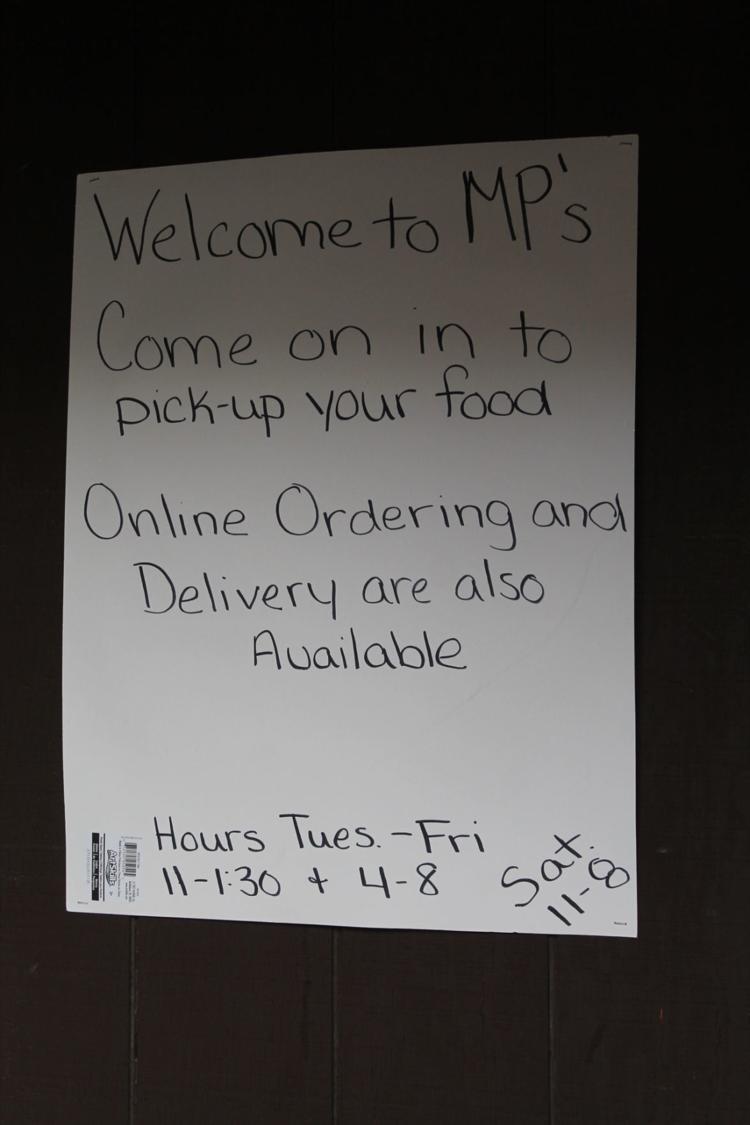 Welcome to MP's
Come on in to
pick-up your food
Online Ordering and
Delivery are also
Available
Hours Tues. - Fri
11-1:30 + 4-8
Sat.
11-8